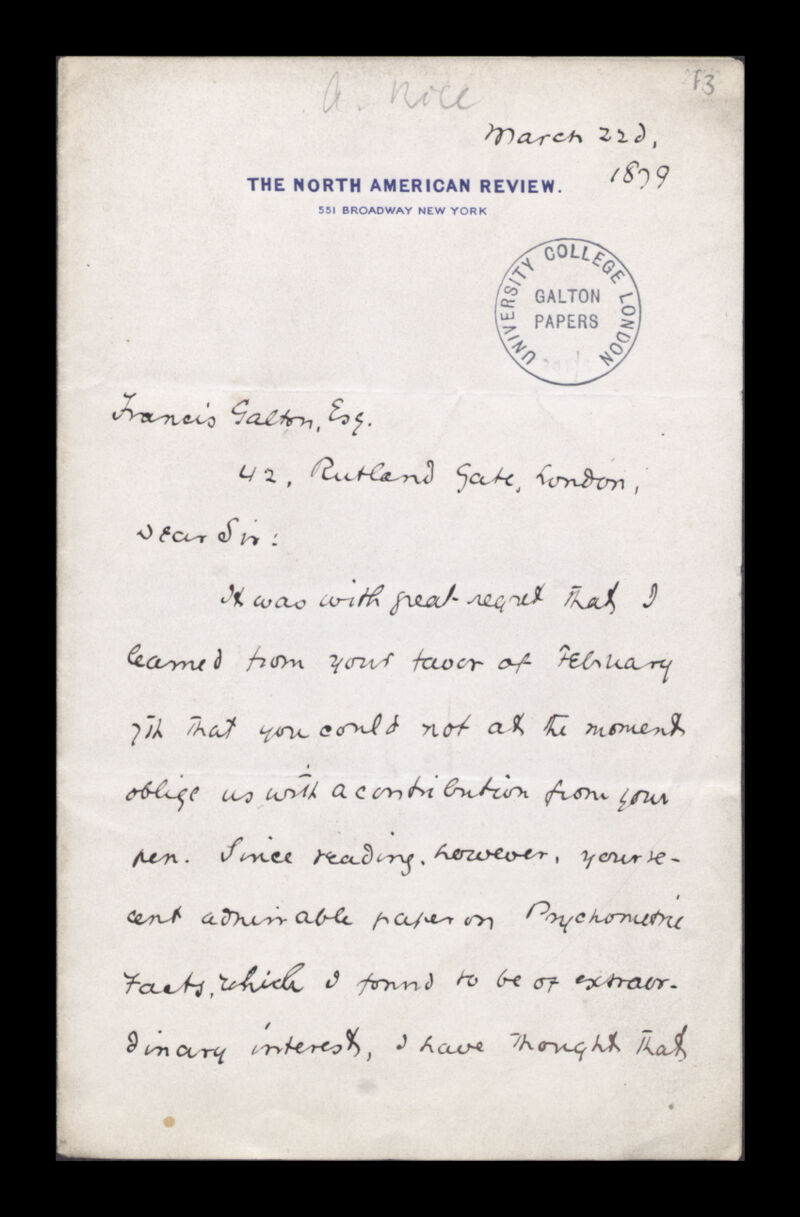 A. Rice
83
March 22d,
1879
THE NORTH AMERICAN REVIEW.
551 BROADWAY NEW YORK
UNIVERSITY COLLEGE LONDON
GALTON
PAPERS
Francis Galton, Esq.
42, Rutland Gate, London,
Dear Sir:
It was with great regret that I
learned from your favor of February
7th that you could not at the moment
oblige us with a contribution from your
pen. Since reading, however, your re-
cent admirable paper on Psychometric
Facts, which I found to be of extraor-
dinary interest, I have thought that